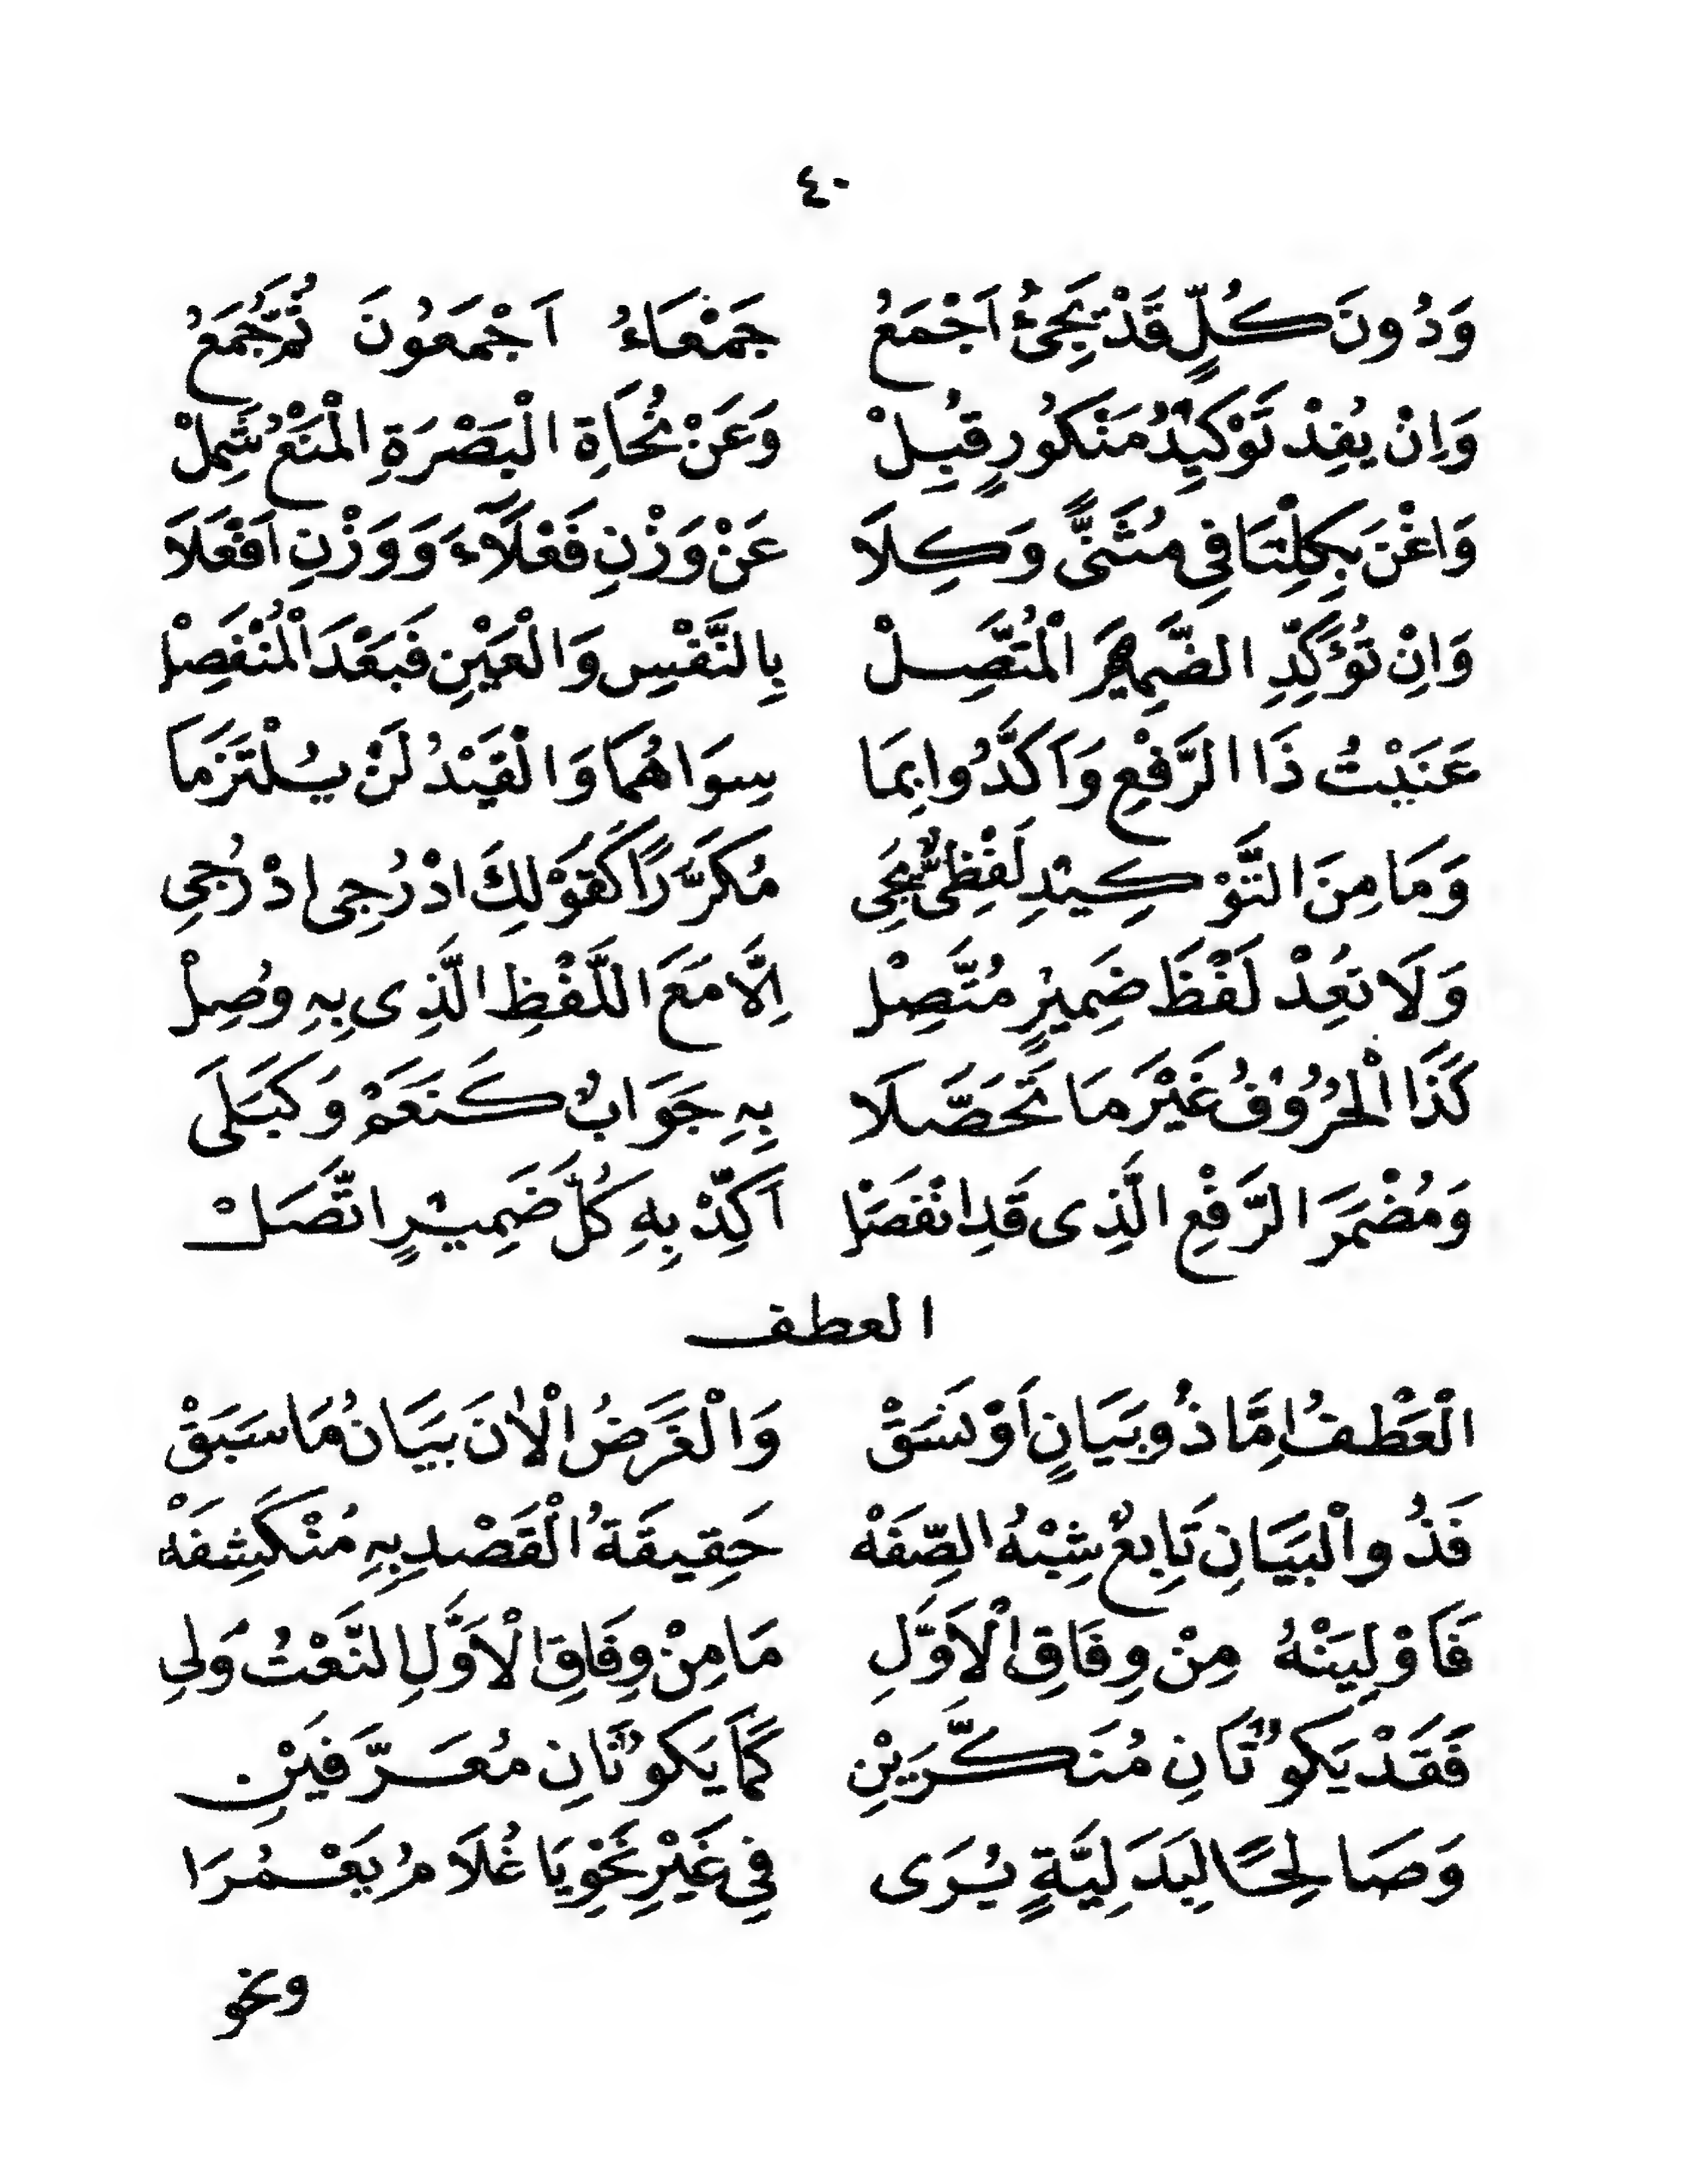 ٤٠
وَدُونَ كُلٍّ قَدْ يَجِىْءُ اَجْمَعُ جَمْعَاءُ اَجْمَعُونَ ثُمَّ جُمَعُ
وَاِنْ يُفِدْ تَوْكِيْدُ مَنْكُورٍ قُبِلْ وَعَنْ نُحَاةِ الْبَصْرَةِ الْمَنْعُ شَمِلْ
وَاغْنَ بِكِلْتَا فِى مُثَنًّى وَكِلَا عَنْ وَزْنِ فَعْلَآءَ وَوَزْنِ اَفْعَلَا
وَاِنْ تُؤَكِّدِ الضَّمِيْرَ الْمُتَّصِلْ بِالنَّفْسِ وَالْعَيْنِ فَبَعْدَ الْمُنْفَصِلْ
عَنَيْتُ ذَا الرَّفْعِ وَاَكَّدُوا بِمَا سِوَاهُمَا وَالْقَيْدُ لَنْ يُلْتَزَمَا
وَمَا مِنَ التَّوْكِيْدِ لَفْظِىٌّ يَجِى مُكَرَّرًا كَقَوْلِكَ ادْرُجِى ادْرُجِى
وَلَا تُعِدْ لَفْظَ ضَمِيْرٍ مُتَّصِلْ اِلَّا مَعَ اللَّفْظِ الَّذِى بِهِ وُصِلْ
كَذَا الْحُرُوْفُ غَيْرَ مَا تَحَصَّلَا بِهِ جَوَابٌ كَنَعَمْ وَكَبَلَى
وَمُضْمَرَ الرَّفْعِ الَّذِى قَدِ انْفَصَلْ اَكِّدْ بِهِ كُلَّ ضَمِيْرٍ اتَّصَلْ
العطف
الْعَطْفُ اِمَّا ذُو بَيَانٍ اَوْ نَسَقْ وَالْغَرَضُ الْاٰنَ بَيَانُ مَا سَبَقْ
فَذُو الْبَيَانِ تَابِعٌ شِبْهُ الصِّفَهْ حَقِيقَةُ الْقَصْدِ بِهِ مُنْكَشِفَهْ
فَاَوْلِيَنْهُ مِنْ وِفَاقِ الْاَوَّلِ مَا مِنْ وِفَاقِ الْاَوَّلِ النَّعْتُ وَلِى
فَقَدْ يَكُوْنَانِ مُنَكَّرَيْنِ كَمَا يَكُوْنَانِ مُعَرَّفَيْنِ
وَصَالِحًا لِبَدَلِيَّةٍ يُرَى فِى غَيْرِ نَحْوِ يَا غُلَامُ يَعْمُرَا
ونحو